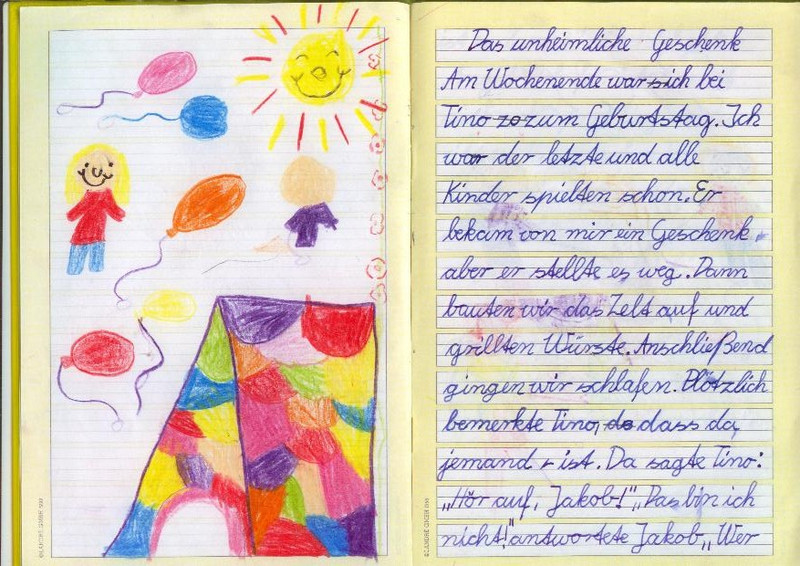 Das unheimliche Geschenk
Am Wochenende war sich bei
Tino zo zum Geburtstag. Ich
war der letzte und alle
Kinder spielten schon. Er
bekam von mir ein Geschenk
aber er stellte es weg. Dann
bauten wir das Zelt auf und
grillten Würste. Anschließend
gingen wir schlafen. Plötzlich
bemerkte Tino, do dass da
jemand ist. Da sagte Tino:
„Hör auf, Jakob!" „Das bin ich
nicht!" antwortete Jakob „Wer